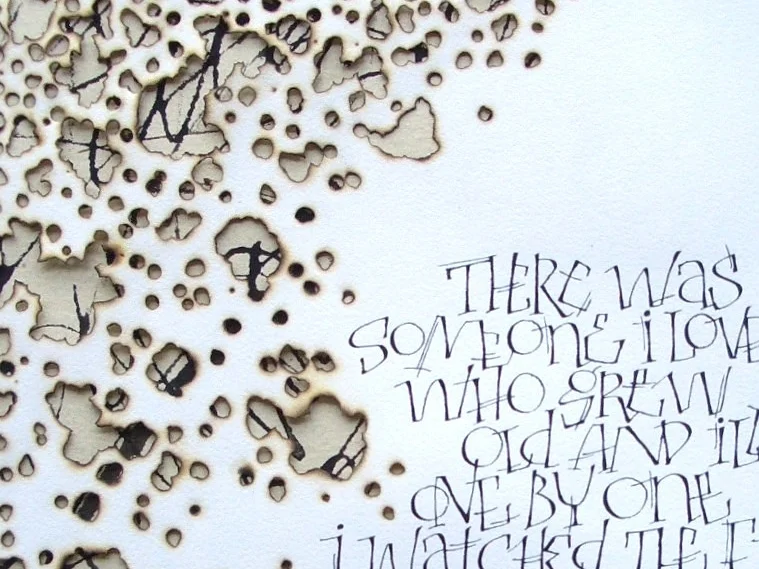 THERE WAS
SOMEONE i LOVE
WHO GREW
OLD AND iL
ONE BY ONE
i WATCHED THE F